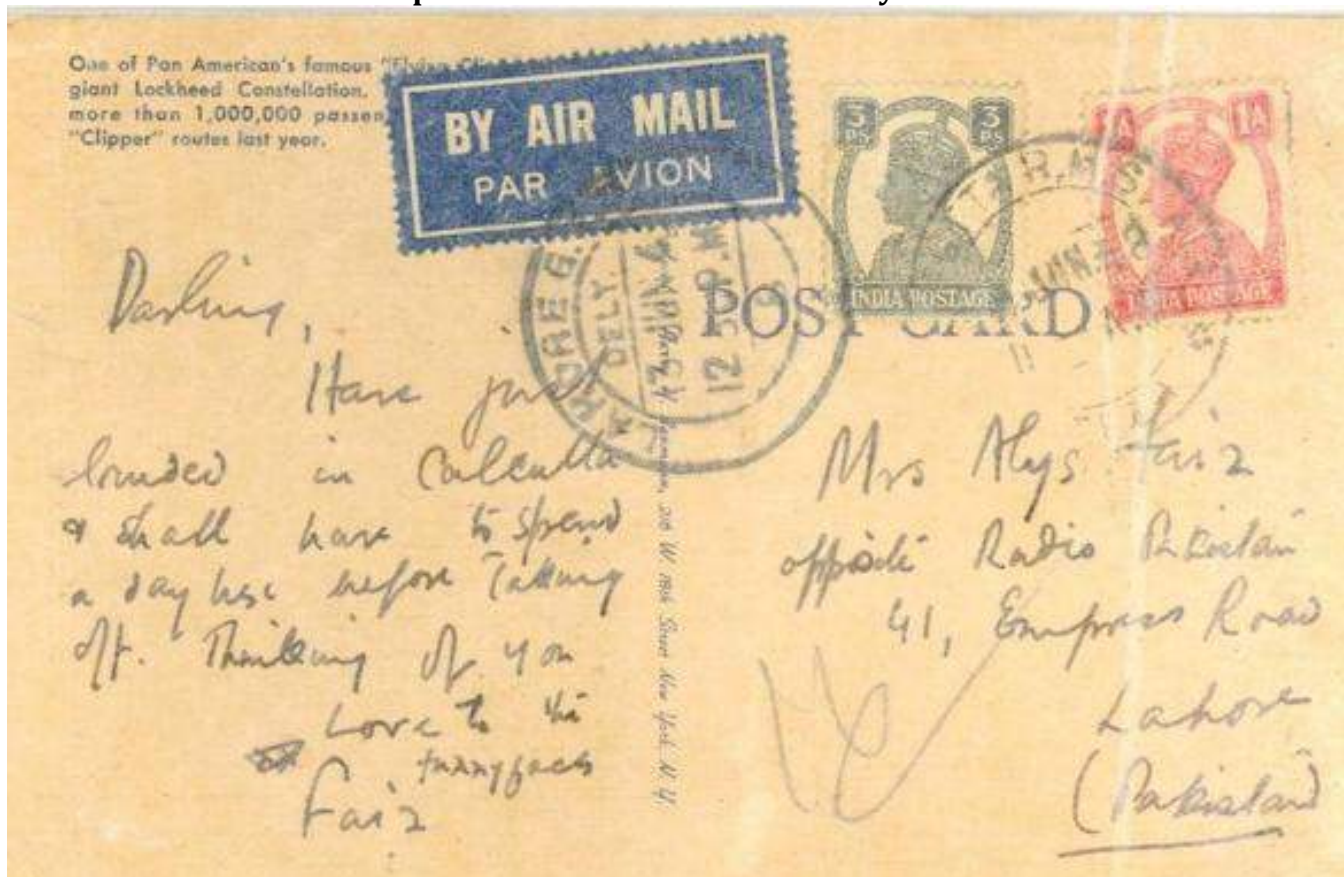 One of Pan American's famous "Flying
giant Lockheed Constellation.
more than 1,000,000 passen
"Clipper" routes last year.
BY AIR MAIL
PAR AVION
3 PS 3 PS
INDIA POSTAGE
1A 1A
INDIA POSTAGE
LAHORE G.
DELY.
12 30 P.M
T.R.M.
JUN.
POST CARD
Darling,
Have just
landed in Calcutta
& shall have to spend
a day here before taking
off. Thinking of you
Love to the
funnyfaces
Faiz
Mrs Alys Faiz
opposite Radio Pakistan
41, Empress Road
Lahore
(Pakistan)
W. 18th Street New York N.Y.